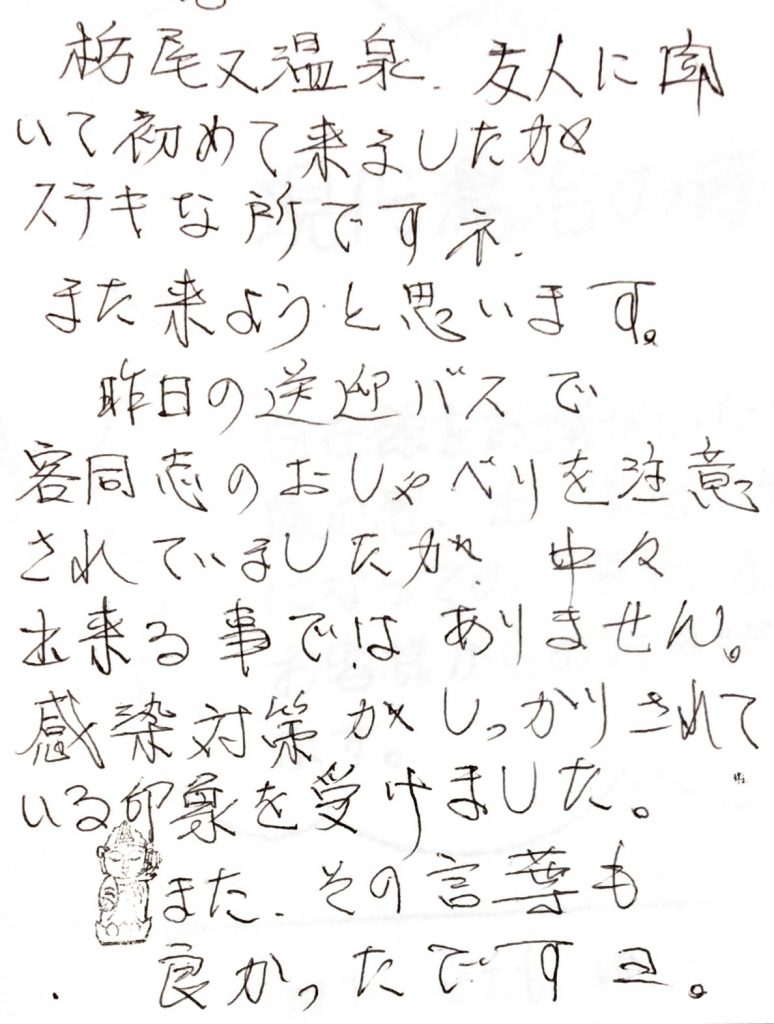 栃尾又温泉、友人に聞
いて初めて来ましたが
ステキな所ですネ、
また来ようと思います。
昨日の送迎バスで
客同志のおしゃべりを注意
されていましたが、中々
出来る事ではありません。
感染対策がしっかりされて
いる印象を受けました。
また、その言葉も
良かったですヨ。